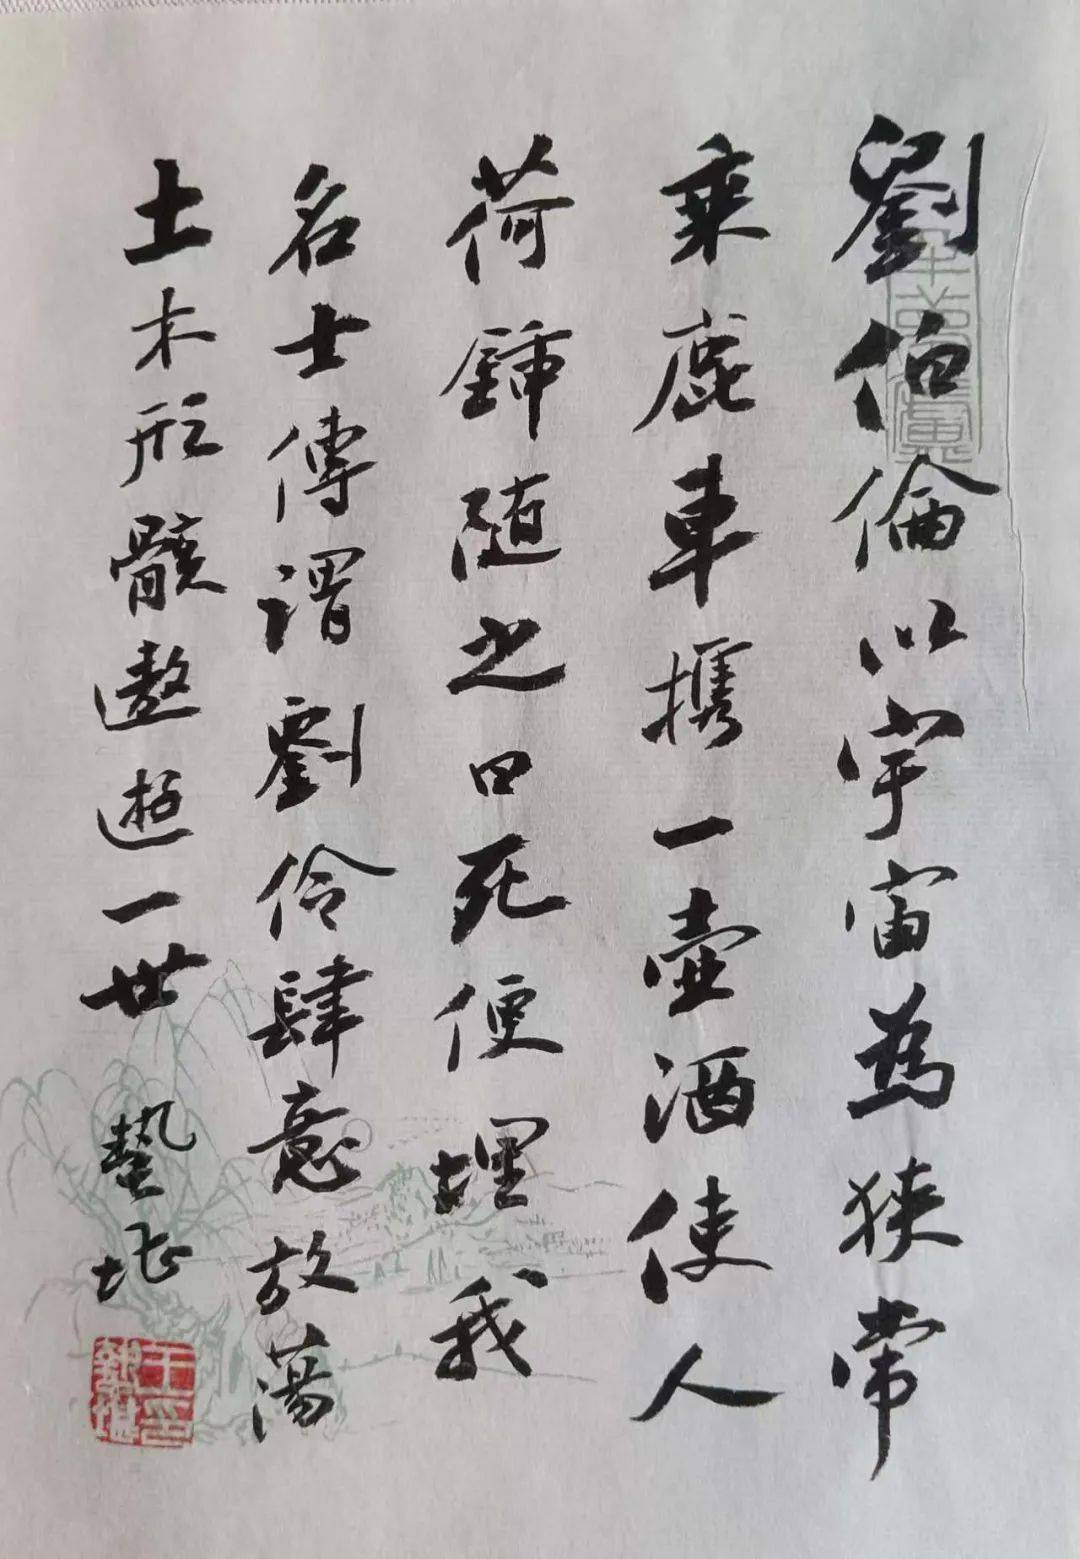 劉伯倫以宇宙為狹常
乘鹿車攜一壺酒使人
荷鍤隨之曰死便埋我
名士傳謂劉伶肆意放蕩
土木形骸遨遊一世